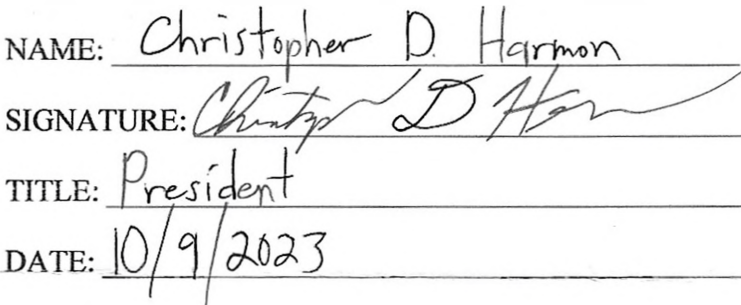 NAME: Christopher D. Harmon
SIGNATURE: Christop D Ha
TITLE: President
DATE: 10/9/2023